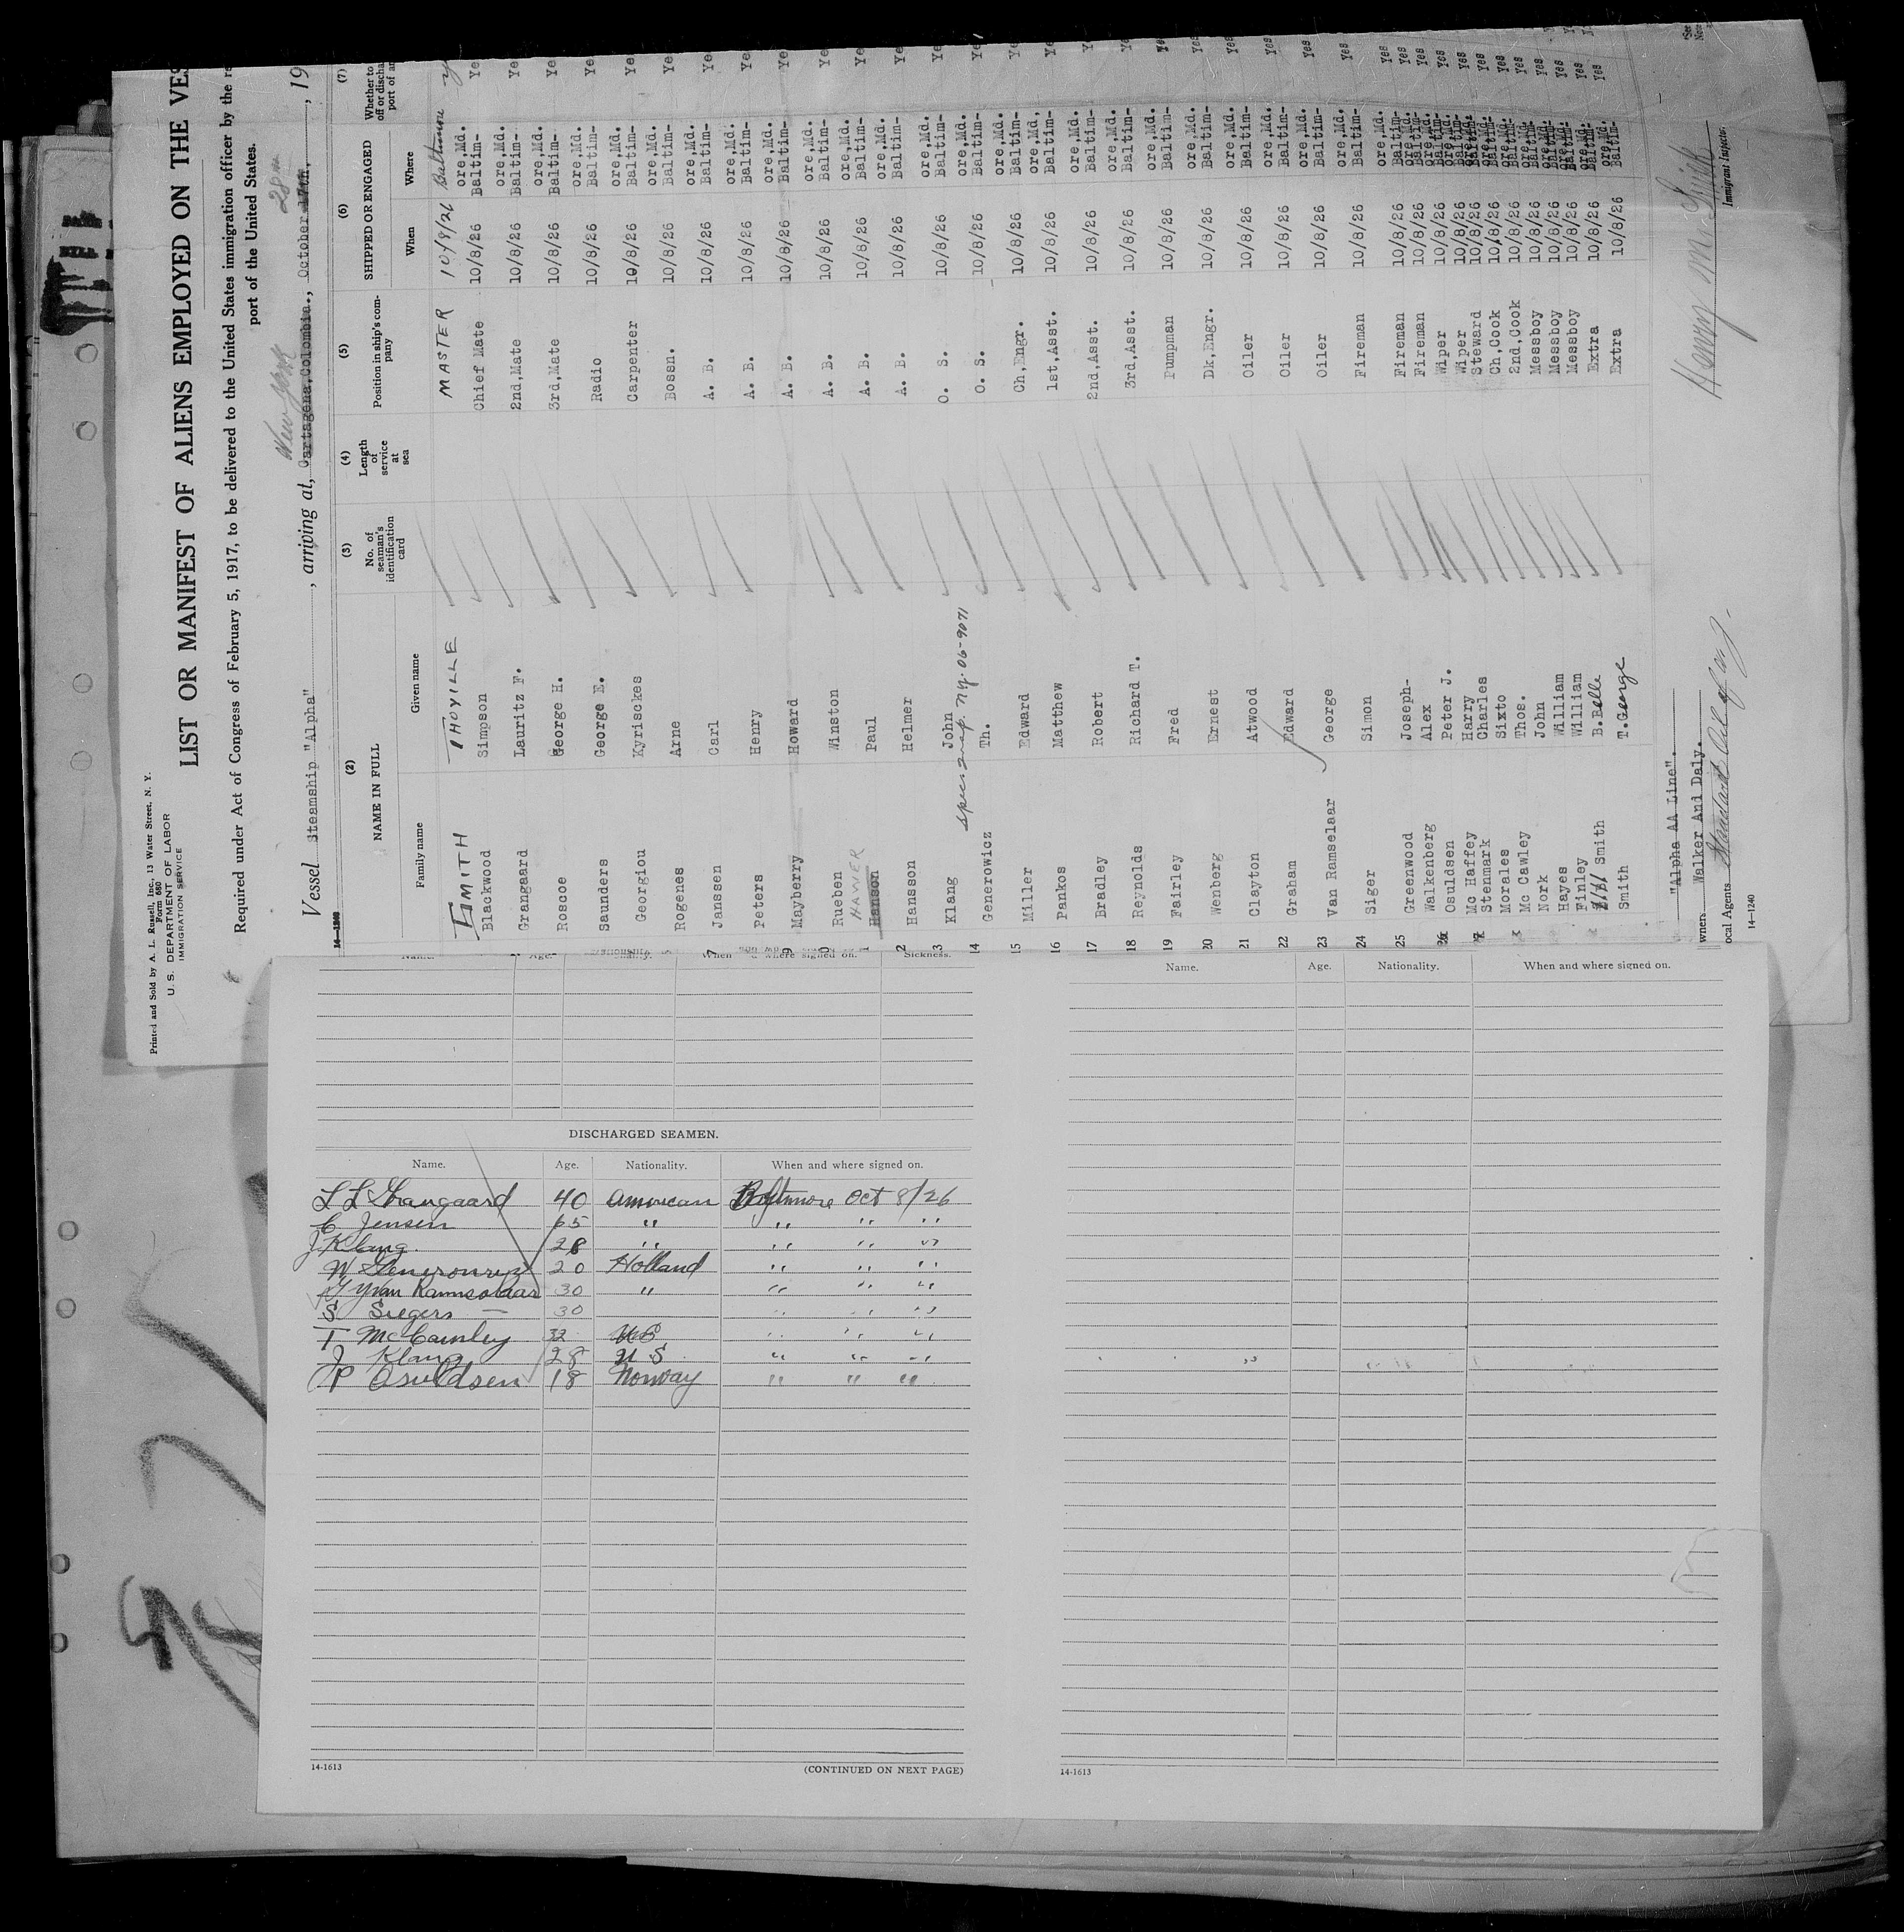 Printed and Sold by A. L. Russell, Inc., 13 Water Street, N. Y.
Form 680
U. S. DEPARTMENT OF LABOR
IMMIGRATION SERVICE
LIST OR MANIFEST OF ALIENS EMPLOYED ON THE VES
Required under Act of Congress of February 5, 1917, to be delivered to the United States immigration officer by the re
port of the United States.
New York 28th
Vessel Steamship "Alpha", arriving at, Cartagena,Colombia., October 17th, , 19
14—1240
(2) (3) (4) (5) (6) (7)
NAME IN FULL No. of seaman's identification card Length of service at sea Position in ship's company SHIPPED OR ENGAGED Whether to off or discha port of ar
Family name Given name When Where
SMITH THOVILLE MASTER 10/8/26 Baltimore
Blackwood Simpson Chief Mate 10/8/26 Baltim-ore,Md. Ye
Grangaard Lauritz F. 2nd,Mate 10/8/26 Baltim-ore,Md. Ye
Roscoe George H. 3rd,Mate 10/8/26 Baltim-ore,Md. Ye
Saunders George E. Radio 10/8/26 Baltim-ore,Md. Ye
Georgiou Kyrisckes Carpenter 10/8/26 Baltim-ore,Md. Ye
Rogenes Arne Bossn. 10/8/26 Baltim-ore,Md. Ye
7 Janssen Carl A. B. 10/8/26 Baltim-ore,Md. Ye
Peters Henry A. B. 10/8/26 Baltim-ore,Md. Ye
9 Mayberry Howard A. B. 10/8/26 Baltim-ore,Md. Ye
10 Rueben Winston A. B. 10/8/26 Baltim-ore,Md. Ye
HAWER
1 Hanson Paul A. B. 10/8/26 Baltim-ore,Md. Ye
2 Hansson Helmer A. B. 10/8/26 Baltim-ore,Md. Ye
13 Klang John O. S. 10/8/26 Baltim-ore,Md. Ye
06-9071
14 Generowicz Th. O. S. 10/8/26 Baltim-ore,Md. Ye
15 Miller Edward Ch,Engr. 10/8/26 Baltim-ore,Md. Ye
16 Pankos Matthew 1st,Asst. 10/8/26 Baltim-ore,Md. Ye
17 Bradley Robert 2nd,Asst. 10/8/26 Baltim-ore,Md. Ye
18 Reynolds Richard T. 3rd,Asst. 10/8/26 Baltim-ore,Md. Ye
19 Fairley Fred Pumpman 10/8/26 Baltim-ore,Md. Ye
20 Wenberg Ernest Dk,Engr. 10/8/26 Baltim-ore,Md. Yes
21 Clayton Atwood Oiler 10/8/26 Baltim-ore,Md. Yes
22 Graham Edward Oiler 10/8/26 Baltim-ore,Md. Yes
23 Van Ramselaar George Oiler 10/8/26 Baltim-ore,Md. Yes
24 Siger Simon Fireman 10/8/26 Baltim-ore,Md. Yes
25 Greenwood Joseph- Fireman 10/8/26 Baltim-ore,Md. Yes
Walkenberg Alex Fireman 10/8/26 Baltim-ore,Md. Yes
26 Osuldsen Peter J. Wiper 10/8/26 Baltim-ore,Md. Yes
Mc Haffey Harry Wiper 10/8/26 Baltim-ore,Md. Yes
Stenmark Charles Steward 10/8/26 Baltim-ore,Md. Yes
Morales Sixto Ch,Cook 10/8/26 Baltim-ore,Md. Yes
Mc Cawley Thos. 2nd,Cook 10/8/26 Baltim-ore,Md. Yes
Nork John Messboy 10/8/26 Baltim-ore,Md. Yes
Hayes William Messboy 10/8/26 Baltim-ore,Md. Yes
Finley William Messboy 10/8/26 Baltim-ore,Md. Yes
Smith B.Belle Extra 10/8/26 Baltim-ore,Md. Yes
Smith T.George Extra 10/8/26 Baltim-ore,Md.
"Alpha AA Line".
wners Walker And Daly.
ocal Agents Standard Oil of
14—1240
Henry M.
Immigrant Inspector.
Name. Age. Nationality. When and where signed on. Sickness.
DISCHARGED SEAMEN.
Name. Age. Nationality. When and where signed on.
L L Grangaard 40 American Baltimore Oct 8/26
C Jensen 65 " " " "
J Klang. 28 " " " "
20 Holland " " "
van 30 " " " "
S Siegers — 30 " " "
T McCawley 32 US " " "
J Klang 28 U S " " "
P Osuldsen 18 Norway " " "
14-1613 (CONTINUED ON NEXT PAGE)
Name. Age. Nationality. When and where signed on.
14-1613